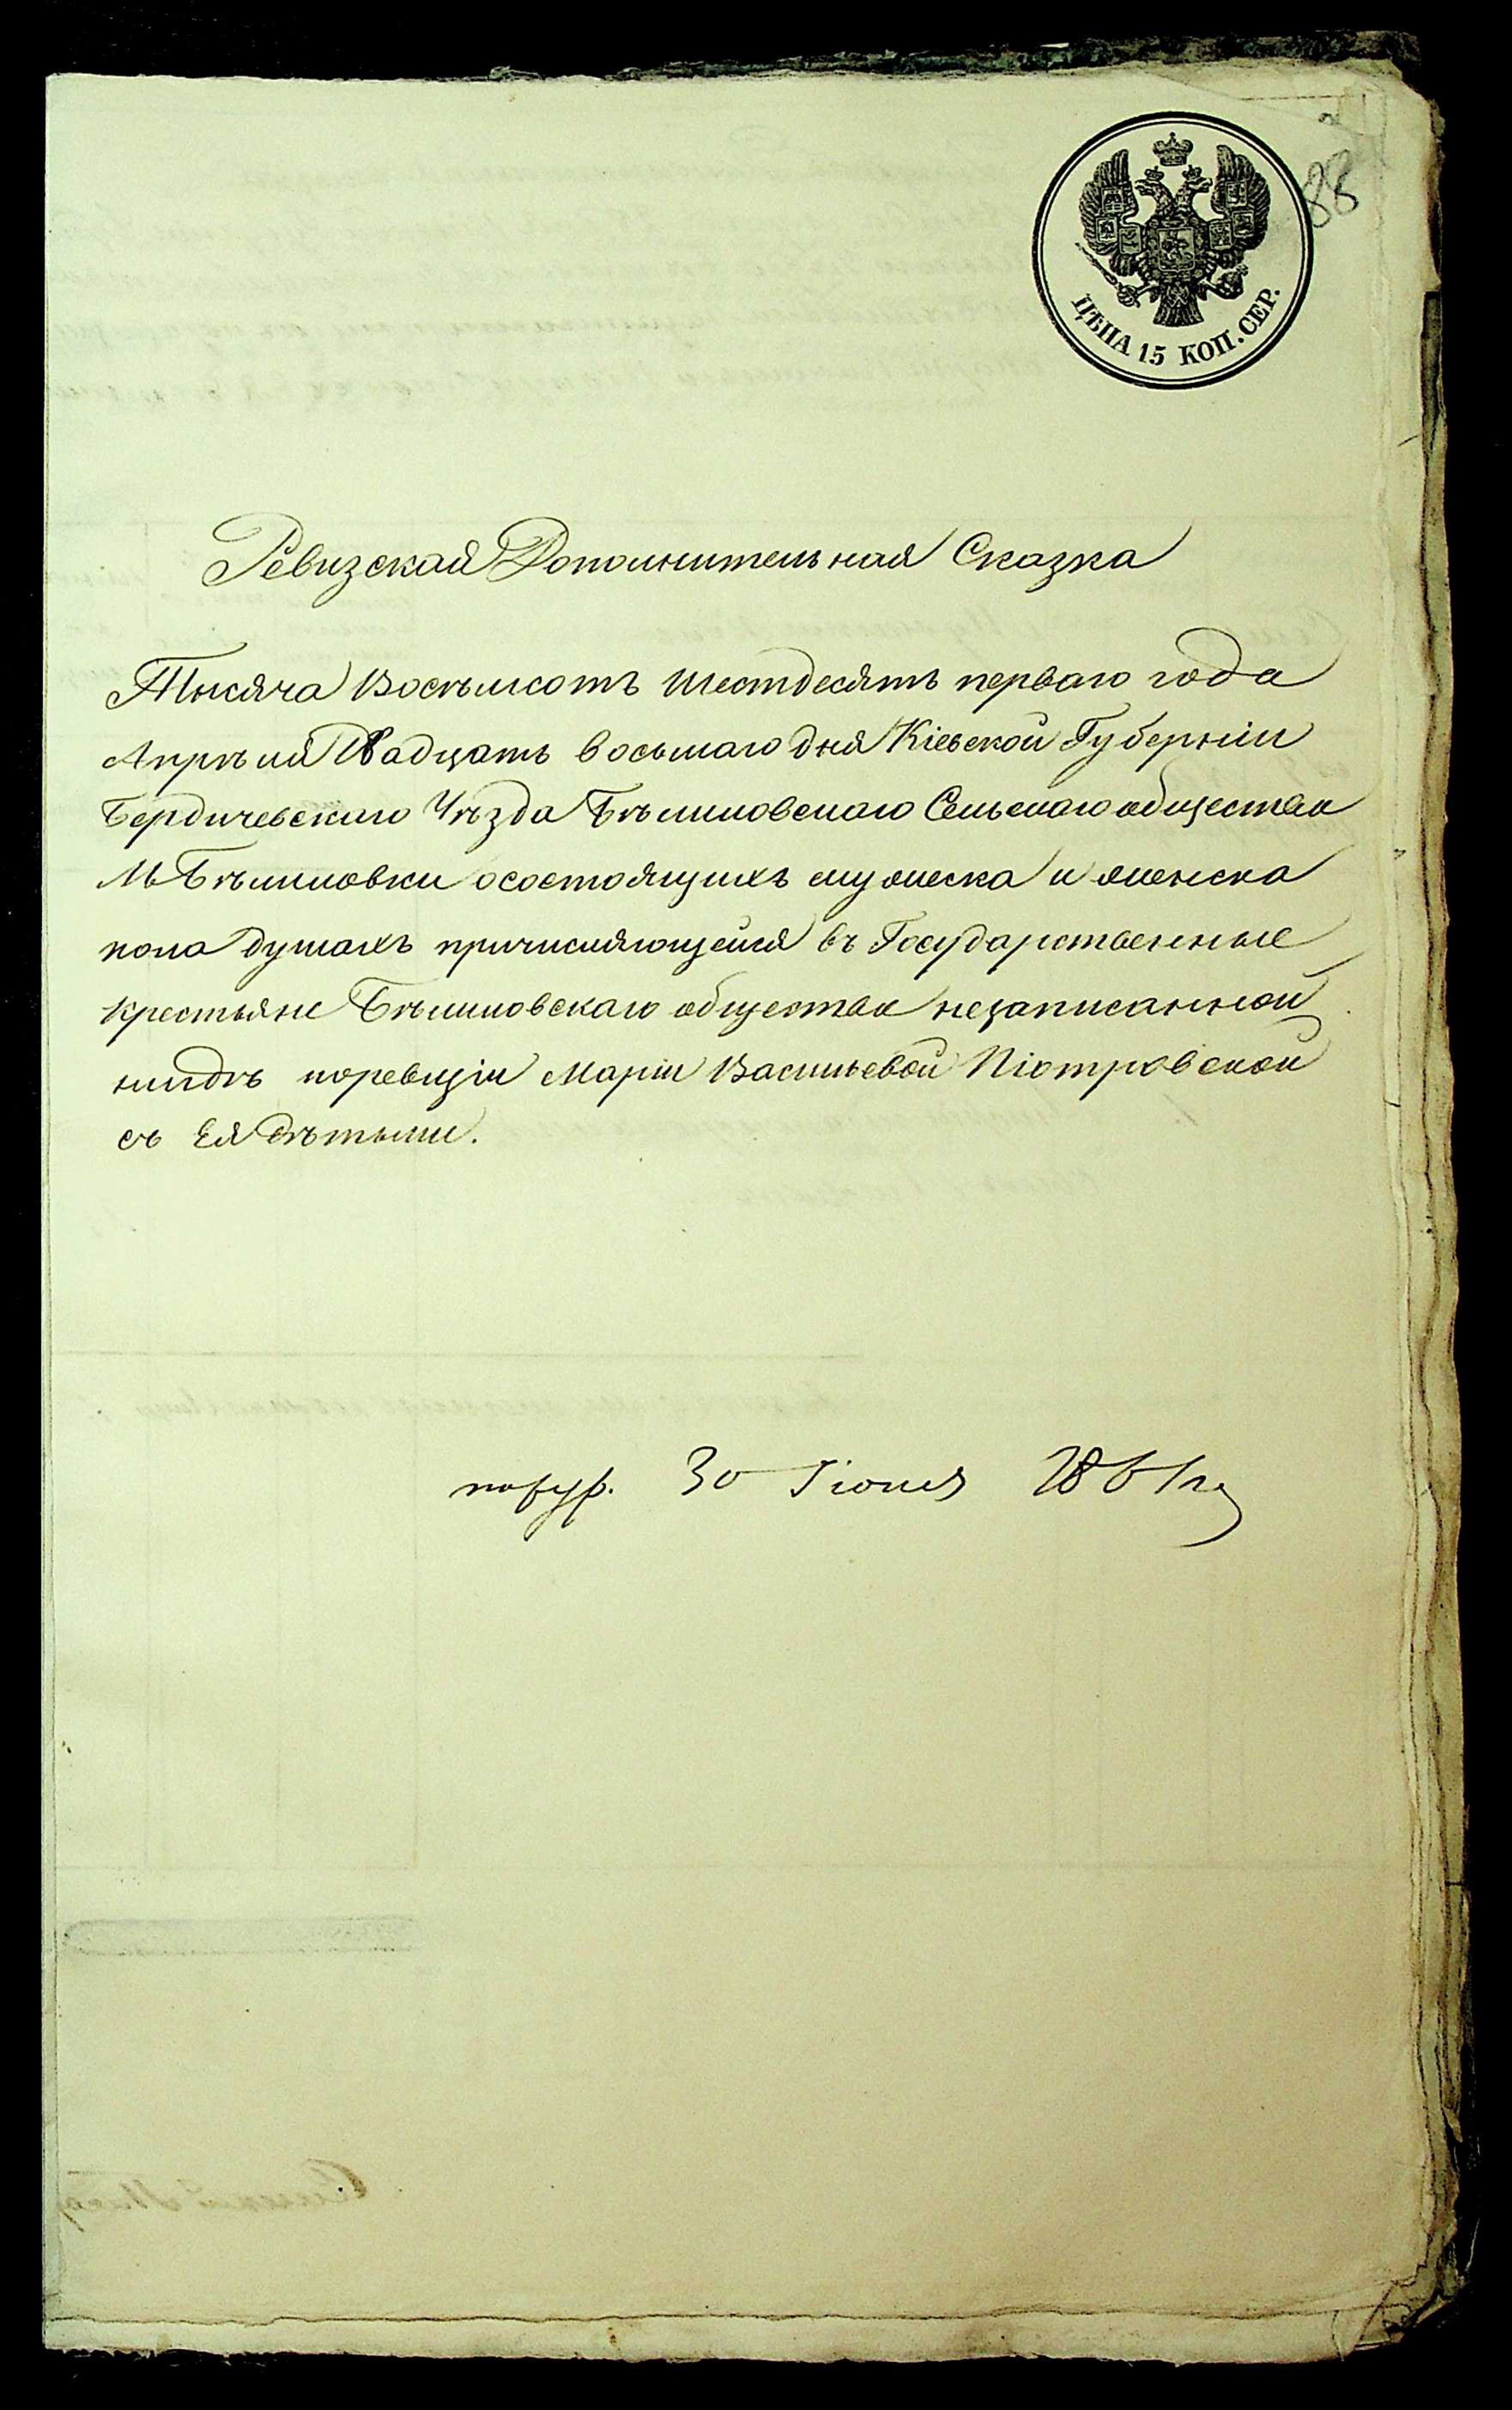 88
ЦѢНА 15 КОП. СЕР.
Ревизская Дополнительная Сказка
Тысяча Восѣмсотъ Шестдесятъ перваго года
Апрѣля Двадцать восьмаго дня Кіевской Губерніи
Бердичевскаго Уѣзда Бѣлиловскаго Сельскаго общества
М Бѣлиловки осостоящихъ мужеска и женска
пола душахъ причисляющейся въ Государственные
крестьяне Бѣлиловскаго общества незаписанной
нигдѣ поревизіи Маріи Васильевой Піотровской
съ Ея дѣтьми.
30 Іюня 1861 г